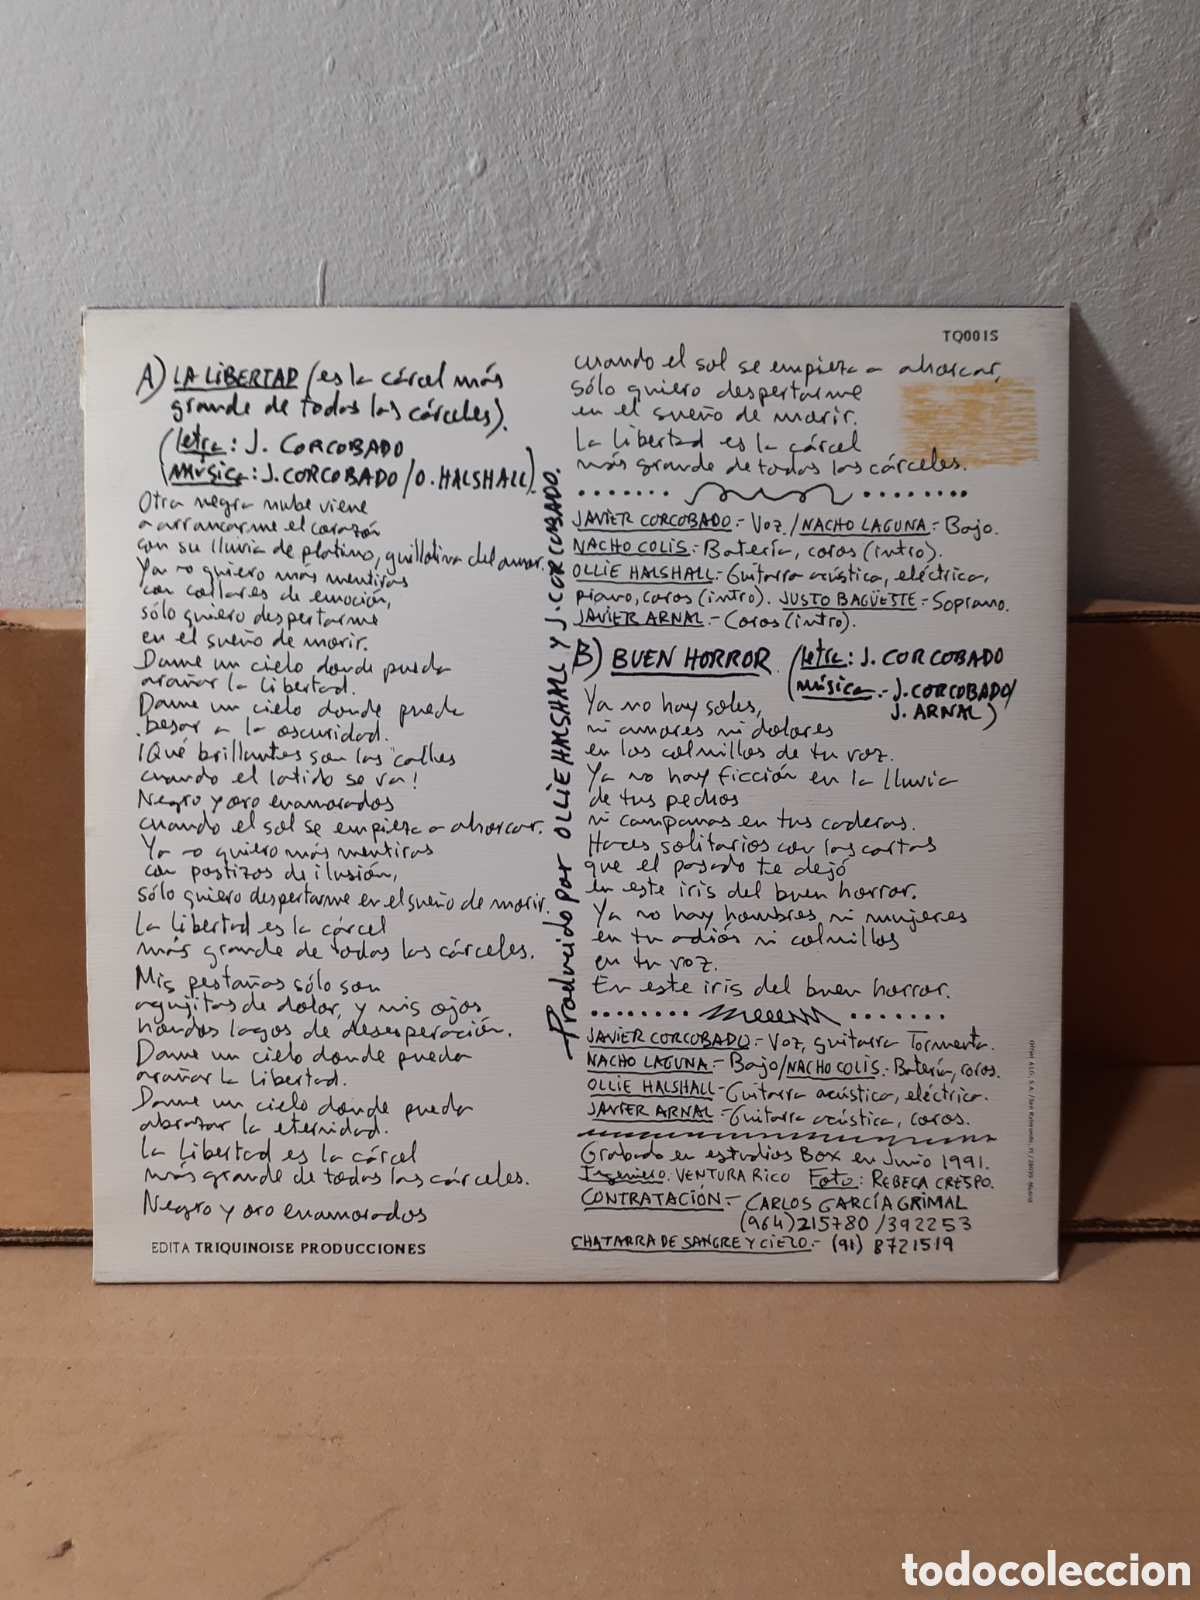 A) LA LIBERTAD (es la cárcel más
grande de todas las cárceles).
(letra: J. CORCOBADO
música: J. CORCOBADO / O. HALSHALL)
Otra negra nube viene
a arrancarme el corazón
con su lluvia de platino, guillotina del amor.
Ya no quiero más mentiras
con collares de emoción,
sólo quiero despertarme
en el sueño de morir.
Dame un cielo donde pueda
arañar la libertad.
Dame un cielo donde pueda
besar a la oscuridad.
¡Qué brillantes son las calles
cuando el latido se va!
Negro y oro enamorados
cuando el sol se empieza a ahorcar.
Ya no quiero más mentiras
con postizos de ilusión,
sólo quiero despertarme en el sueño de morir.
La libertad es la cárcel
más grande de todas las cárceles.
Mis pestañas sólo son
agujitas de dolor, y mis ojos
hondos lagos de desesperación.
Dame un cielo donde pueda
arañar la libertad.
Dame un cielo donde pueda
abrazar la eternidad.
La libertad es la cárcel
más grande de todas las cárceles.
Negro y oro enamorados
EDITA TRIQUINOISE PRODUCCIONES
Producido por OLLIE HALSHALL Y J. CORCOBADO.
TQ001S
cuando el sol se empieza a ahorcar,
sólo quiero despertarme
en el sueño de morir.
La libertad es la cárcel
más grande de todas las cárceles.
JAVIER CORCOBADO.- Voz. / NACHO LAGUNA.- Bajo.
NACHO COLIS.- Batería, coros (intro).
OLLIE HALSHALL.- Guitarra acústica, eléctrica,
piano, coros (intro). JUSTO BAGÜESTE.- Soprano.
JAVIER ARNAL.- Coros (intro).
B) BUEN HORROR (letra: J. CORCOBADO
música.- J. CORCOBADO/
J. ARNAL)
Ya no hay soles,
ni amores ni dolores
en los colmillos de tu voz.
Ya no hay ficción en la lluvia
de tus pechos
ni campanas en tus caderas.
Haces solitarios con las cartas
que el pasado te dejó
en este iris del buen horror.
Ya no hay hombres ni mujeres
en tu adiós ni colmillos
en tu voz.
En este iris del buen horror.
JAVIER CORCOBADO.- Voz, guitarra Tormenta.
NACHO LAGUNA.- Bajo / NACHO COLIS.- Batería, coros.
OLLIE HALSHALL.- Guitarra acústica, eléctrica.
JAVIER ARNAL.- Guitarra acústica, coros.
Grabado en estudios Box en Junio 1991.
Ingeniero: VENTURA RICO Foto: REBECA CRESPO.
CONTRATACIÓN.- CARLOS GARCÍA GRIMAL
(964) 215780 / 392253
CHATARRA DE SANGRE Y CIELO.- (91) 8721519
todocoleccion